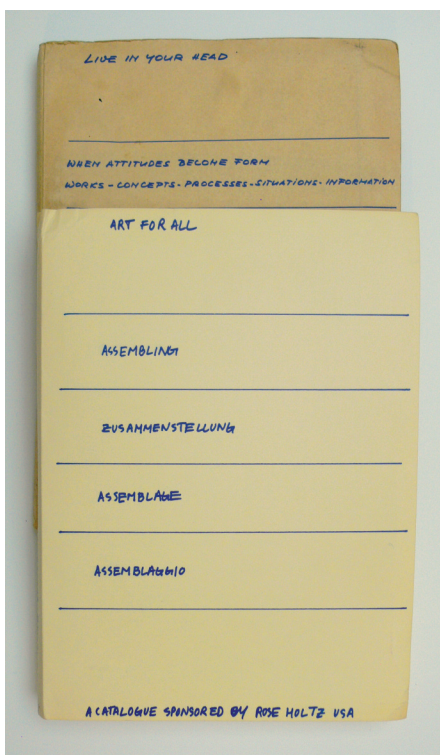 LIVE IN YOUR HEAD
WHEN ATTITUDES BECOME FORM
WORKS - CONCEPTS - PROCESSES - SITUATIONS - INFORMATION
ART FOR ALL
ASSEMBLING
ZUSAMMENSTELLUNG
ASSEMBLAGE
ASSEMBLAGGIO
A CATALOGUE SPONSORED BY ROSE HOLTZ USA